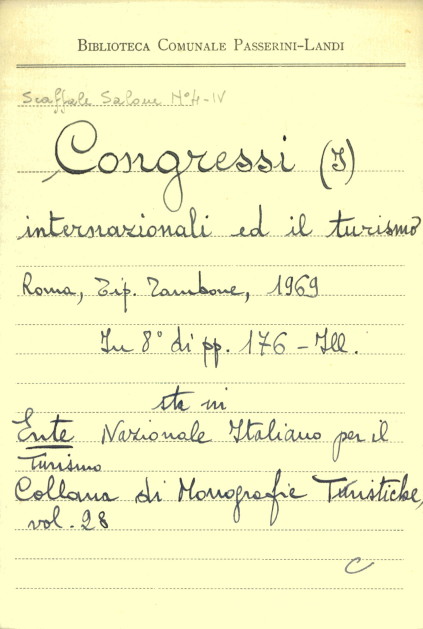 BIBLIOTECA COMUNALE PASSERINI-LANDI
Scaffale Salone N° 4-IV
Congressi (I)
internazionali ed il turismo
Roma, Tip. Tambone, 1969
In 8° di pp. 176 - Ill.
sta in
Ente Nazionale Italiano per il
Turismo
Collana di Monografie Turistiche,
vol. 28
C